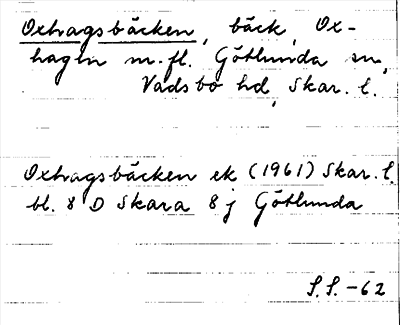 Oxhagsbäcken, bäck, Ox-
hagen m.fl. Götlunda sn,
Vadsbo hd, Skar. l.
Oxhagsbäcken ek (1961) Skar. l.
bl. 8 D Skara 8 j Götlunda
S.S. -62